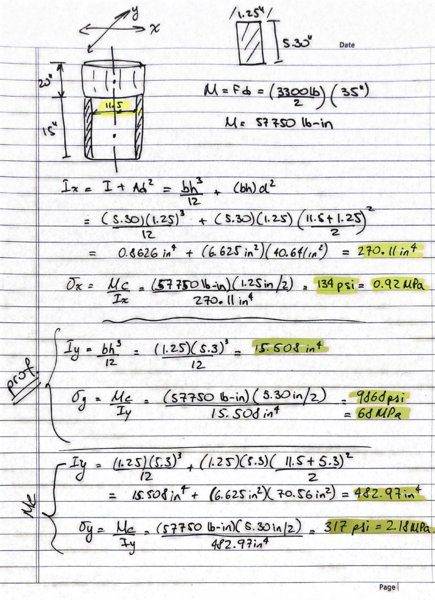 y
x
/1.25"/
5.30"
Date
20"
11.5
15"
M = Fd = (3300lb/2)(35")
M = 57750 lb-in
Ix = I + Ad² = bh³/12 + (bh)d²
= (5.30)(1.25)³/12 + (5.30)(1.25)(11.5+1.25/2)²
= 0.8626in⁴ + (6.625in²)(40.641in²) = 270.11in⁴
σx = Mc/Ix = (57750 lb-in)(1.25in/2)/270.11in⁴ = 134 psi = 0.92MPa
prof
Iy = bh³/12 = (1.25)(5.3)³/12 = 15.508in⁴
σy = Mc/Iy = (57750 lb-in)(5.30in/2)/15.508in⁴ = 9868psi
= 68MPa
Me
Iy = (1.25)(5.3)³/12 + (1.25)(5.3)(11.5+5.3/2)²
= 15.508in⁴ + (6.625in²)(70.56in²) = 482.97in⁴
σy = Mc/Iy = (57750 lb-in)(5.30in/2)/482.97in⁴ = 317 psi = 2.18MPa
Page